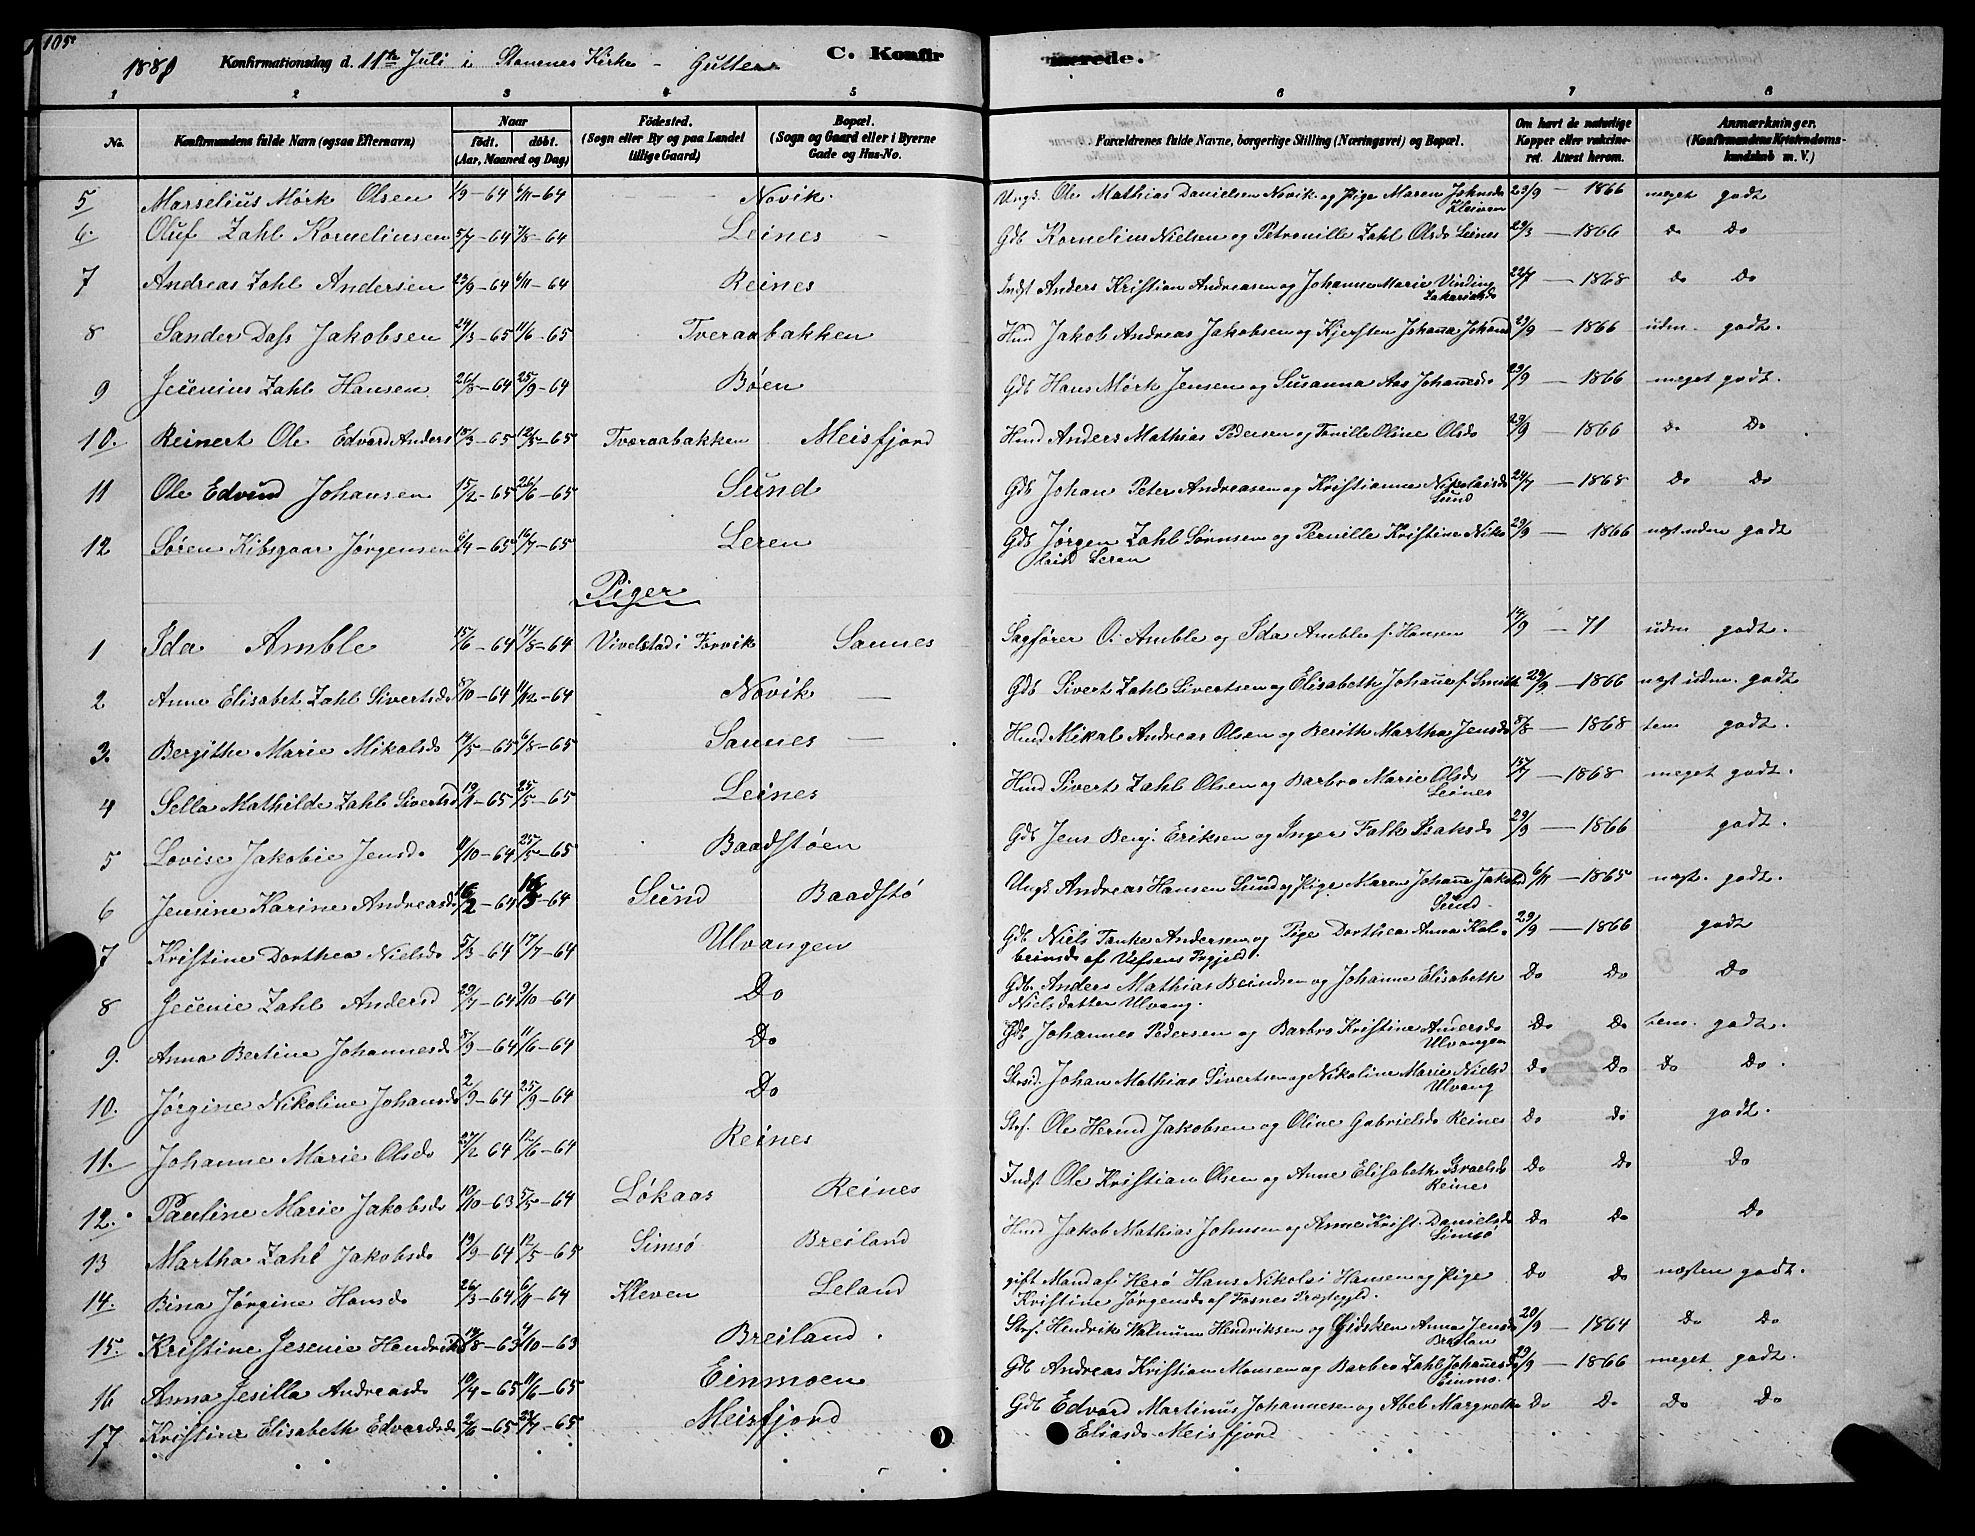 105.
1880 Konfirmationsdag d. 11te Juli i Stamnes Kirke - Gutter C. Konfir merede.
1 2 3 4 5 6 7 8
No. Konfirmandens fulde Navn (ogsaa Efternavn) Naar födt. döbt. (Aar, Maaned og Dag) Födested. (Sogn eller By og paa Landet tillige Gaard) Bopæl. (Sogn og Gaard eller i Byerne Gade og Hus-No. Forældrenes fulde Navne, borgerlige Stilling (Næringsvei) og Bopæl. Om havt de naturlige Kopper eller vakcineret. Attest herom. Anmærkninger. (Konfirmandens Kristendomskundskab m. V.)
5 Marselius Mørk Olsen 1/9-64 6/11-64 Novik. Ungk. Ole Mathias Danielsen Novik og Pige Maren Johnsd. Kleiven 29/9 - 1866 meget godt
6. Oluf Zahl Kornelinsen 5/7-64 7/8-64 Leines Gdb Kornelius Nielsen og Petronille Zahl Olsd Leines 29/3 - 1866 Do Do
7 Andreas Zahl Andersen 23/9-64 6/11-64 Reines Indst Anders Kristian Andreasen og Johanne Marie Vinding Zakariasd. 22/7 - 1868 Do Do
8 Sander Dass Jakobsen 24/3-65 11/6-65 Tveraabakken Hmd Jakob Andreas Jakobsen og Kjersten Johanna Johansd 29/9 - 1866 udm. godt.
9 Jecenius Zahl Hansen 26/8-64 25/9-64 Bøen Gdb Hans Mørk Jensen og Susanna Aas Johannesd. 29/9 - 1866 meget godt.
10. Reinert Ole Edvard Anders 15/3-65 12/3-65 Tveraabakken Meisfjord Hmd Anders Mathias Pedersen og Torille Oline Olsd. 29/9 - 1866 Do Do
11 Ole Edvind Johansen 15/2-65 26/6-65 Sund Gdb Johan Peter Andreasen og Kristianne Nikolaisd. Sund 24/7 - 1868 Do Do
12 Søren Kibsgaar Jørgensen 6/4-65 16/7-65 Leren Gdb Jørgen Zahl Sørnsen og Pernille Kristine Niko laisd Leren 29/9 - 1866 næst uden godt
Piger
1 Ida Amble 15/6-64 14/8-64 Vivelstad i Forvik Sannes Sagfører O. Amble og Ida Amble f. Hansen 14/9 - 71 udm godt.
2 Anne Elisabet Zahl Sivertsd. 8/10-64 11/12-64 Novik Gdb Sivert Zahl Sivertsen og Elisabeth Johanne f. Smith 29/9 - 1866 næst udm. godt
3. Bergithe Marie Mikalsd. 14/5-65 6/8-65 Sannes Hmd Mikal Andreas Olsen og Berith Martha Jensd. 8/8 - 1868 tem godt.
4 Sella Mathilde Zahl Sivertsd 19/1-65 25/5-65 Leines Hmd Sivert Zahl Olsen og Barbro Marie Olsd. Leines 15/7 - 1868 meget godt.
5 Lovise Jakobie Jensd. 9/10-64 25/5-65 Baadstøen Gdb Jens Benj. Eriksen og Inger Falk Isaksd. 29/9 - 1866 godt.
6 Jensine Karine Andreasd. 16/2-64 18/3-64 Sund Baadstø Ungk Andreas Hansen Sund og Pige Maren Johanne Jakobsd Sund. 6/11 - 1865 næst. godt.
7 Kristine Dorthea Nielsd. 5/3-64 17/7-64 Ulvangen Gdb Niels Tanke Andersen og Pige Dorthea Anna Kol- beinsd. af Vefsens Prgjeld. 29/9 - 1866 godt
8 Jecenie Zahl Andersd 29/7-64 9/10-64 Do Gdb. Anders Mathias Beindsen og Johanne Elisabeth Nielsdatter Ulvang. Do Do Do
9. Anna Bertine Johannesd. 8/3-64 11/6-64 Do Gdb Johannes Pedersen og Barbro Kristine Andersd. Ulvangen Do Do tem. godt.
10. Jørgine Nikoline Johansd. 2/9-64 25/9-64 Do Strsid. Johan Mathias Sivertsen og Nikoline Marie Nielsd Ulvang Do Do Do Do.
11. Johanne Marie Olsd. 27/2 64 12/6-64 Reines Strf. Ole Hernd Jakobsen og Oline Gabrielsd. Reines Do Do godt.
12. Pauline Marie Jakobsd. 19/10-63 5/5-64 Løkaas Reines Indst Ole Kristian Olsen og Anne Elisabeth Israelsd. Reines Do Do Do
13 Martha Zahl Jakobsd. 19/9-64 12/5-65 Simsø Breiland Hmd Jakob Mathias Johnsen og Anne Krist. Danielsd. Simsø Do Do Do
14. Bina Jørgine Hansd. 26/3-64 6/11-64 Kleven Leland gift Mand af Herø Hans Nikolai Hansen og Pige Kristine Jørgensd. af Fosnes Præstegjld. Do Do næsten godt.
15. Kristine Jesenie Hendriks 19/8-63 4/10-63 Breiland. Strf. Hendrik Walnum Hendriksen og Gidsken Anna Jensd. Breilan 20/9 - 1864 Do Do
16 Anna Jesilla Andreasd. 19/4-65 11/6-65 Einmoen Gdb Andreas Kristian Monsen og Barbro Zahl Johannesd. Einmo. 29/9 - 1866 meget godt.
17 Kristine Elisabeth Edvardsd. 2/6-65 23/7-65 Meisfjord Gdb Edvard Martinus Johannesen og Abel Margrethe Eliasd. Meisfjord Do Do Do Do